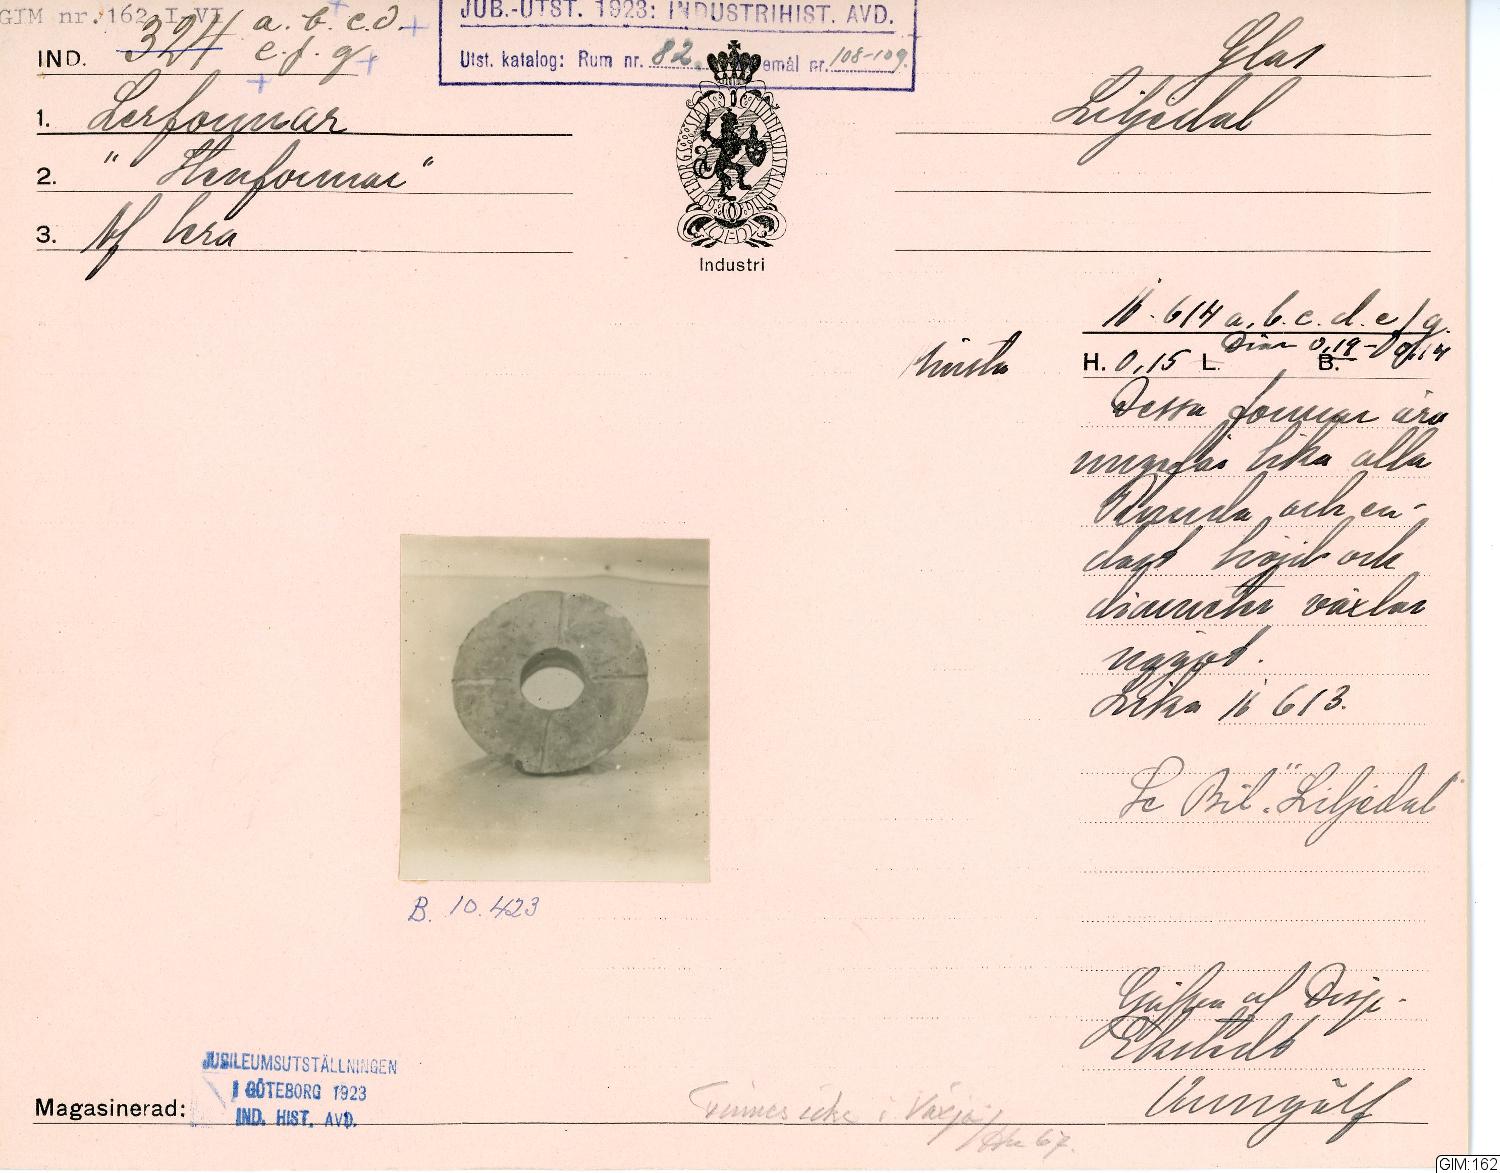 GIM nr. 162 I-VI
IND. 324 a. b. c. d.
e. f. g
JUB.-UTST. 1923: INDUSTRIHIST. AVD.
Utst. katalog: Rum nr. 82. emål nr. 108-109.
Glas
Liljedal
1. Lerformar
2. " formar"
3. Af lera
Industri
614 a, b. c. d. e f g.
Diam 0,19-0,14
minsta H. 0,15 L. B.
Dessa formar äro
ungefär lika alla
Runda och en-
dast höjd och
diameter växlar
något.
Lika 613.
Se Bil. "Liljedal"
B. 10.423
Gåfva af Disp.
Ekstedt
Kungälf
JUBILEUMSUTSTÄLLNINGEN
I GÖTEBORG 1923
IND. HIST. AVD.
Magasinerad:
Finnes icke i Växjö/
67.
GIM:162